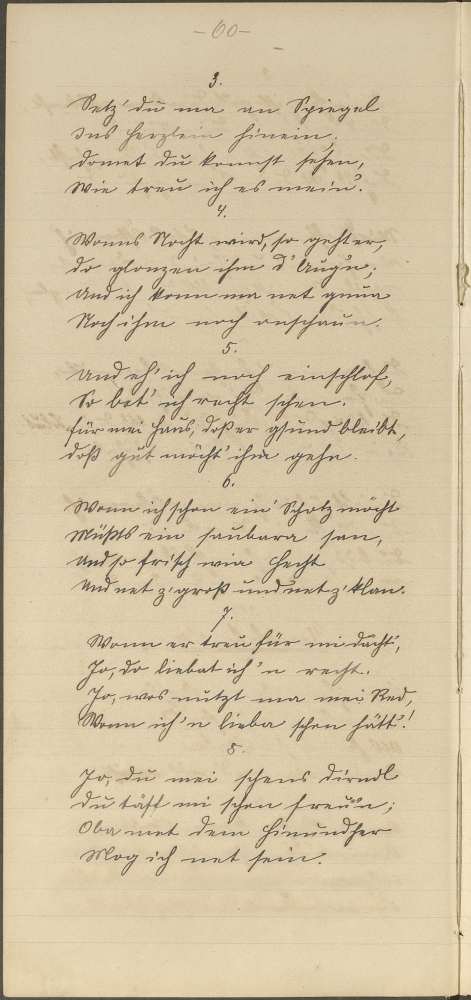 -60-
3.
Setz' du ma an Spiegel
Ins Herzlein hinein.
Domet du konnst sehen,
Wie treu ich es mein'.
4.
Wonns Nocht wird, so geht er,
Do glonzen ihm d' Aug'n;
Und ich konn ma net gnua
Noch ihm noch onschaun.
5.
Und eh' ich noch einschlof,
So bet' ich recht schen.
Für mei Haus, doß er gsund bleibt,
doß gut möcht' ihm gehn.
6.
Wonn ich schon ein' Schotz möcht
Müßts ein saubara san,
Und so frisch wia Hecht
Und net z' groß und net z' klan.
7.
Wonn er treu für mi dächt',
Jo, do liebat ich 'n recht.
Jo, wos nützt ma mei Red,
Wonn ich 'n lieba schon hätt'!
8.
Jo, du mei schens Dirndl
Du täst mi schon freu'n;
Oba met dem Hinundher
Mog ich net sein.